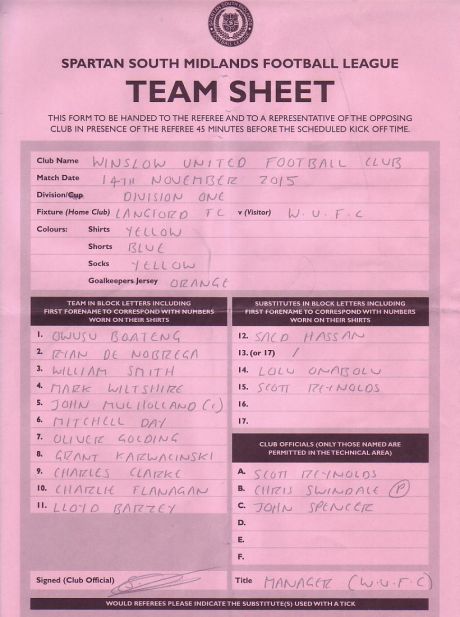 SPARTAN SOUTH MIDLANDS FOOTBALL LEAGUE
SPARTAN SOUTH MIDLANDS FOOTBALL LEAGUE
TEAM SHEET
THIS FORM TO BE HANDED TO THE REFEREE AND TO A REPRESENTATIVE OF THE OPPOSING
CLUB IN PRESENCE OF THE REFEREE 45 MINUTES BEFORE THE SCHEDULED KICK OFF TIME.
Club Name WINSLOW UNITED FOOTBALL CLUB
Match Date 14TH NOVEMBER 2015
Division/Cup DIVISION ONE
Fixture (Home Club) LANGFORD FC v (Visitor) W.U.F.C
Colours: Shirts YELLOW
Shorts BLUE
Socks YELLOW
Goalkeepers Jersey ORANGE
TEAM IN BLOCK LETTERS INCLUDING
FIRST FORENAME TO CORRESPOND WITH NUMBERS
WORN ON THEIR SHIRTS
1. OWUSU BOATENG
2. RYAN DE NOBREGA
3. WILLIAM SMITH
4. MARK WILTSHIRE
5. JOHN MULHOLLAND (C)
6. MITCHELL DAY
7. OLIVER GOLDING
8. GRANT KARWACINSKI
9. CHARLES CLARKE
10. CHARLIE FLANAGAN
11. LLOYD
SUBSTITUTES IN BLOCK LETTERS INCLUDING
FIRST FORENAME TO CORRESPOND WITH NUMBERS
WORN ON THEIR SHIRTS
12. SAED HASSAN
13. (or 17) /
14. LOLU ONABOLU
15. SCOTT REYNOLDS
16.
17.
CLUB OFFICIALS (ONLY THOSE NAMED ARE
PERMITTED IN THE TECHNICAL AREA)
A. SCOTT REYNOLDS
B. CHRIS SWINDALE (P)
C. JOHN SPENCER
D.
E.
F.
Signed (Club Official)
Title MANAGER (W.U.F.C)
WOULD REFEREES PLEASE INDICATE THE SUBSTITUTE(S) USED WITH A TICK